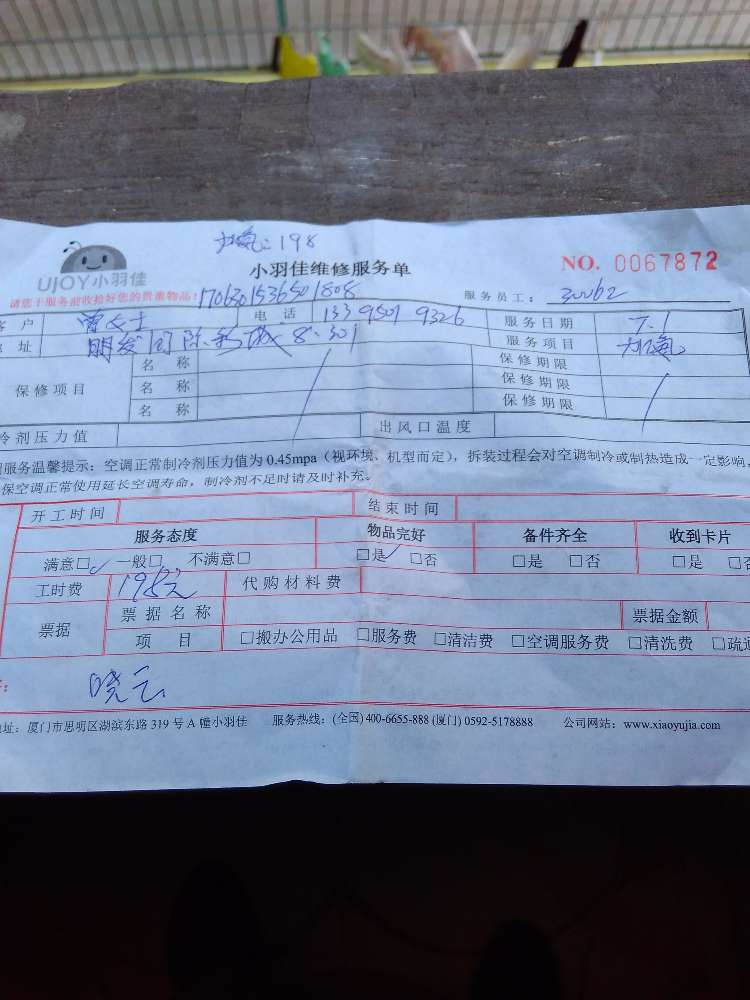 加氟：198
UJOY小羽佳
小羽佳维修服务单
NO. 0067872
请您于服务前收拾好您的贵重物品！
1706301536501808
服务员工： 30062
户 曾女士 电 话 133 9501 9326 服务日期 7.1
址 8.301 服务项目 加氟
保修项目 名 称 保修期限
名 称 保修期限
名 称 保修期限
冷剂压力值 出风口温度
服务温馨提示：空调正常制冷剂压力值为 0.45mpa（视环境、机型而定），拆装过程会对空调制冷或制热造成一定影响，
保空调正常使用延长空调寿命，制冷剂不足时请及时补充。
开工时间 结束时间
服务态度 物品完好 备件齐全 收到卡片
满意□✓ 一般□ 不满意□ □是✓ □否 □是 □否 □是 □否
工时费 198元 代购材料费
票据 票据名称 票据金额
项 目 □搬办公用品 □服务费 □清洁费 □空调服务费 □清洗费 □疏通
晓云
地址：厦门市思明区湖滨东路 319 号 A 幢小羽佳 服务热线：(全国) 400-6655-888 (厦门) 0592-5178888 公司网站：www.xiaoyujia.com